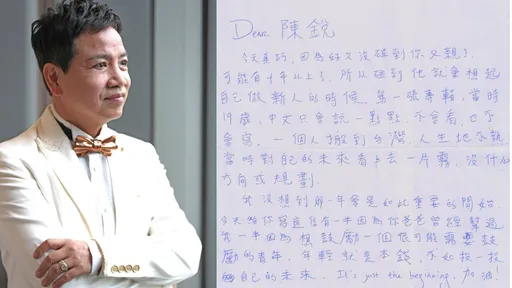 Dear 陳銳
今天真巧,因為好久沒碰到你父親了.
可能有十年以上了,所以碰到他就會想起
自己做新人的時候,第一張專輯,當時
19歲,中文只會說一點點,不會看,也不
會寫,一個人搬到台灣,人生地不熟
當時對自己的未來看上去一片霧,沒什麼
方向或規劃.
我沒想到那一年會是如此重要的開始.
今天給你寫這信有一半因為你爸爸曾經幫過
我一半因為想鼓勵一個很可能需要鼓
勵的青年,年輕就是本錢,不如投一投
自己的未來, It's just the beginning, 加油!